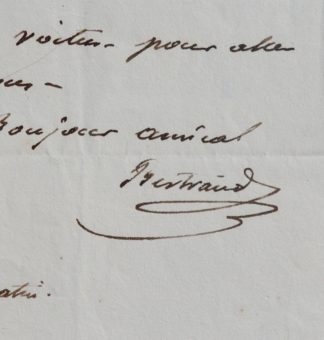 voitur- pour aller
ous-
Bonjour amical
Bertrand